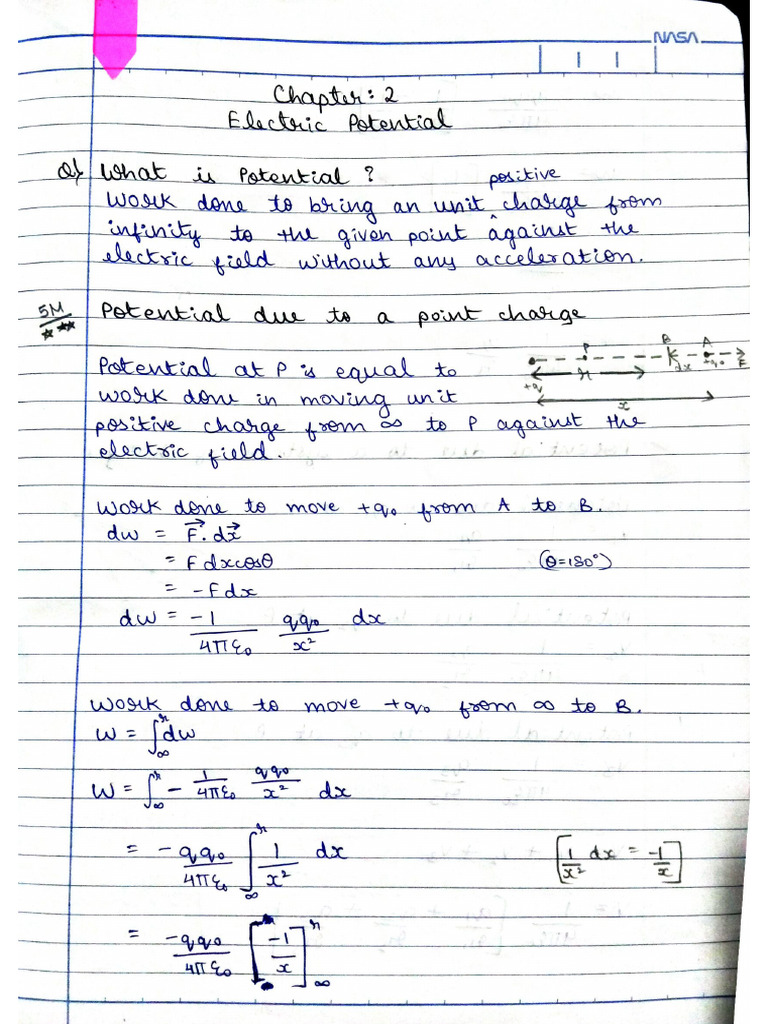 NASA
Chapter: 2
Electric Potential
Q) What is Potential?
positive
Work done to bring an unit ^ charge from
infinity to the given point against the
electric field without any acceleration.
5M
Potential due to a point charge
Potential at P is equal to
work done in moving unit
positive charge from ∞ to P against the
electric field.
P B A
+q r dx +q₀ F
x
Work done to move +q₀ from A to B.
dw = F⃗.dx⃗
= Fdxcosθ (θ=180°)
= -Fdx
dw = -1/4πε₀ qq₀/x² dx
Work done to move +q₀ from ∞ to B.
W = ∫∞^r dw
W = ∫∞^r - 1/4πε₀ qq₀/x² dx
= -qq₀/4πε₀ ∫∞^r 1/x² dx [1/x² dx = -1/x]
= -qq₀/4πε₀ [-1/x]∞^r